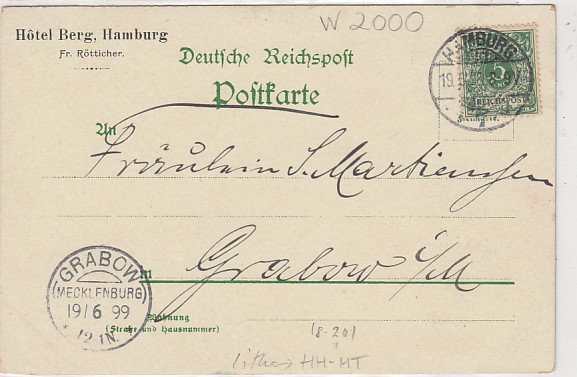 W 2000
Hôtel Berg, Hamburg
Fr. Rötticher.
Deutsche Reichspost
Postkarte
HAMBURG
19.
5
REICHSPOST
An
Fräulein S. Martienssen
in Grabow i/M
GRABOW
(MECKLENBURG)
19/6 99
12-1N.
Wohnung
(Straße und Hausnummer)
(8-20)
litho HH-MT